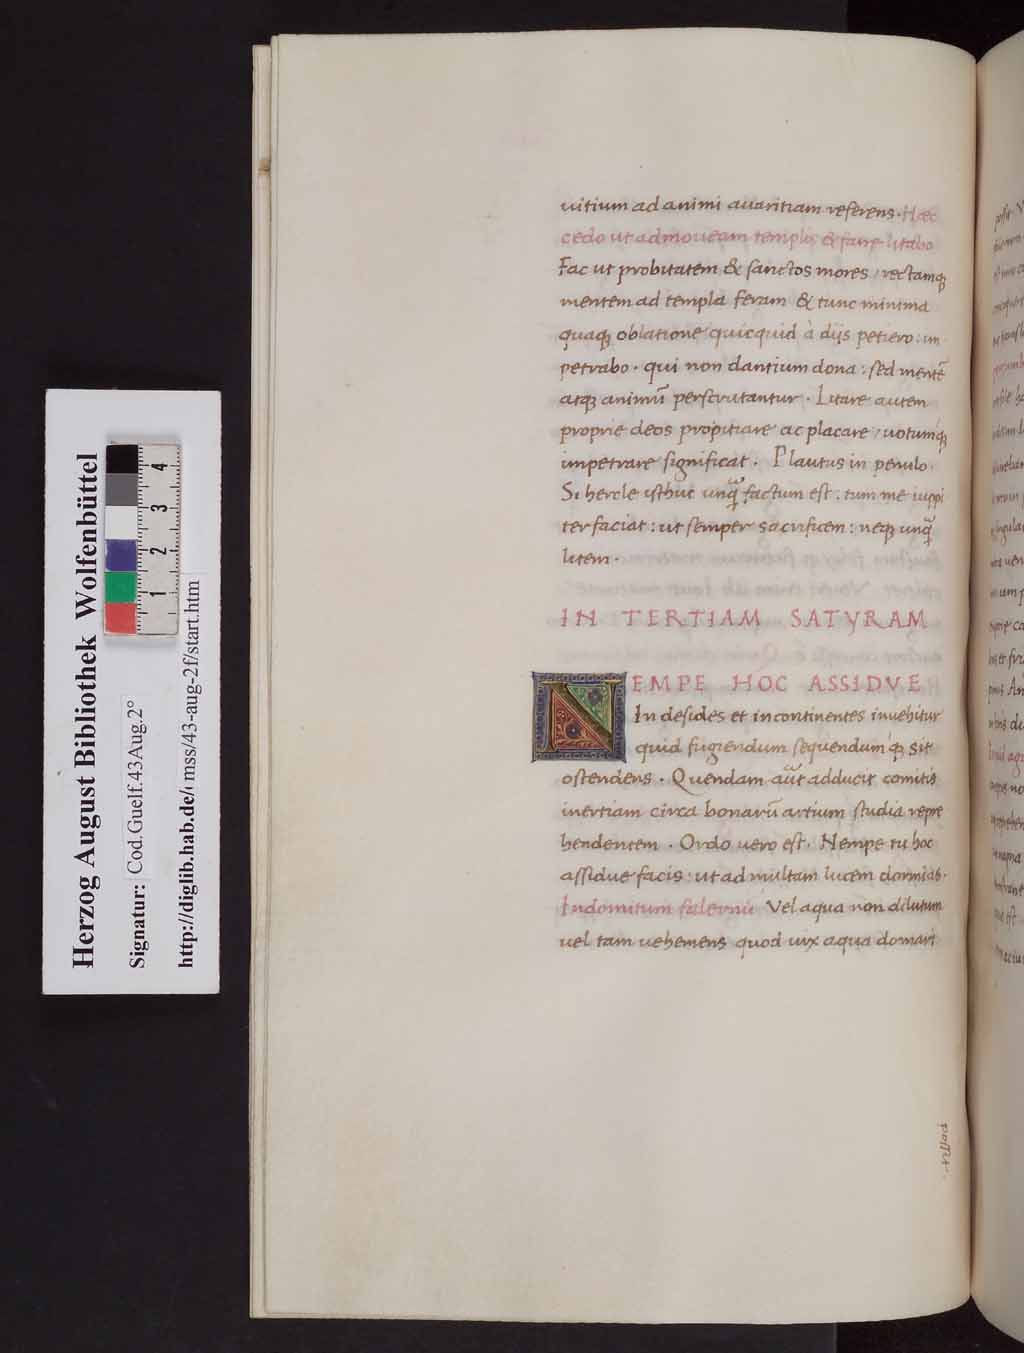 uitium ad animi auaritiam referens. Haec
cedo ut admoueam templis & farre litabo
Fac ut probitatem & sanctos mores, rectamq;
mentem ad templa feram & tunc minima
quaq; oblatione quicquid à dijs petiero: im
petrabo. qui non dantium dona: sed mentē
atq; animū perscrutantur. Litare autem
proprie deos propitiare ac placare, uotumq;
impetrare significat. Plautus in penulo.
Si hercle isthuc unq̃ factum est: tum me iuppi
ter faciat: ut semper sacrificem: neq; unq̃
litem.
IN TERTIAM SATYRAM
NEMPE HOC ASSIDVE
In desides et incontinentes inuehitur
quid fugiendum sequendumq; sit
ostendens. Quendam aũt adducit comitis
inertiam circa bonarū artium studia repre
hendentem. Ordo uero est. Nempe tu hoc
assidue facis: ut ad multam lucem dormias.
Indomitum falernū Vel aqua non dilutum
uel tam uehemens quod uix aqua domari
possit.
Herzog August Bibliothek Wolfenbüttel
Signatur: Cod.Guelf.43Aug.2°
http://diglib.hab.de/ mss/43-aug-2f/start.htm
1 2 3 4